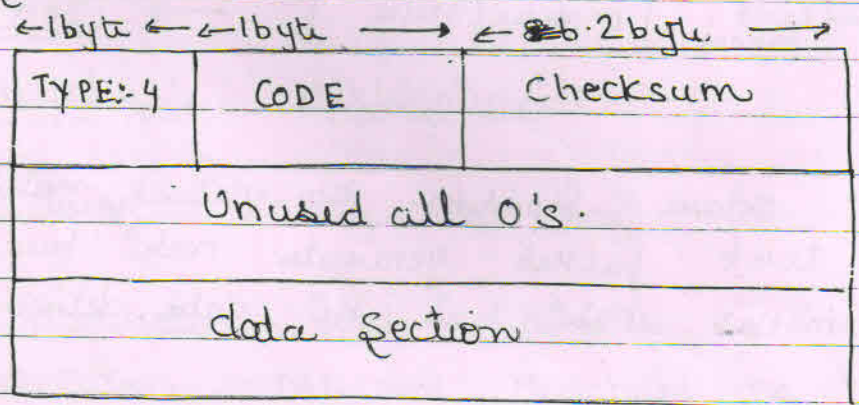 1byte 1byte 2byte
TYPE:-4 CODE Checksum
Unused all 0's.
data section